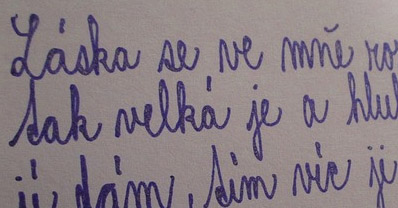 Láska se ve mňe ro
tak velká je a hlu
ji dám, tim víc ji